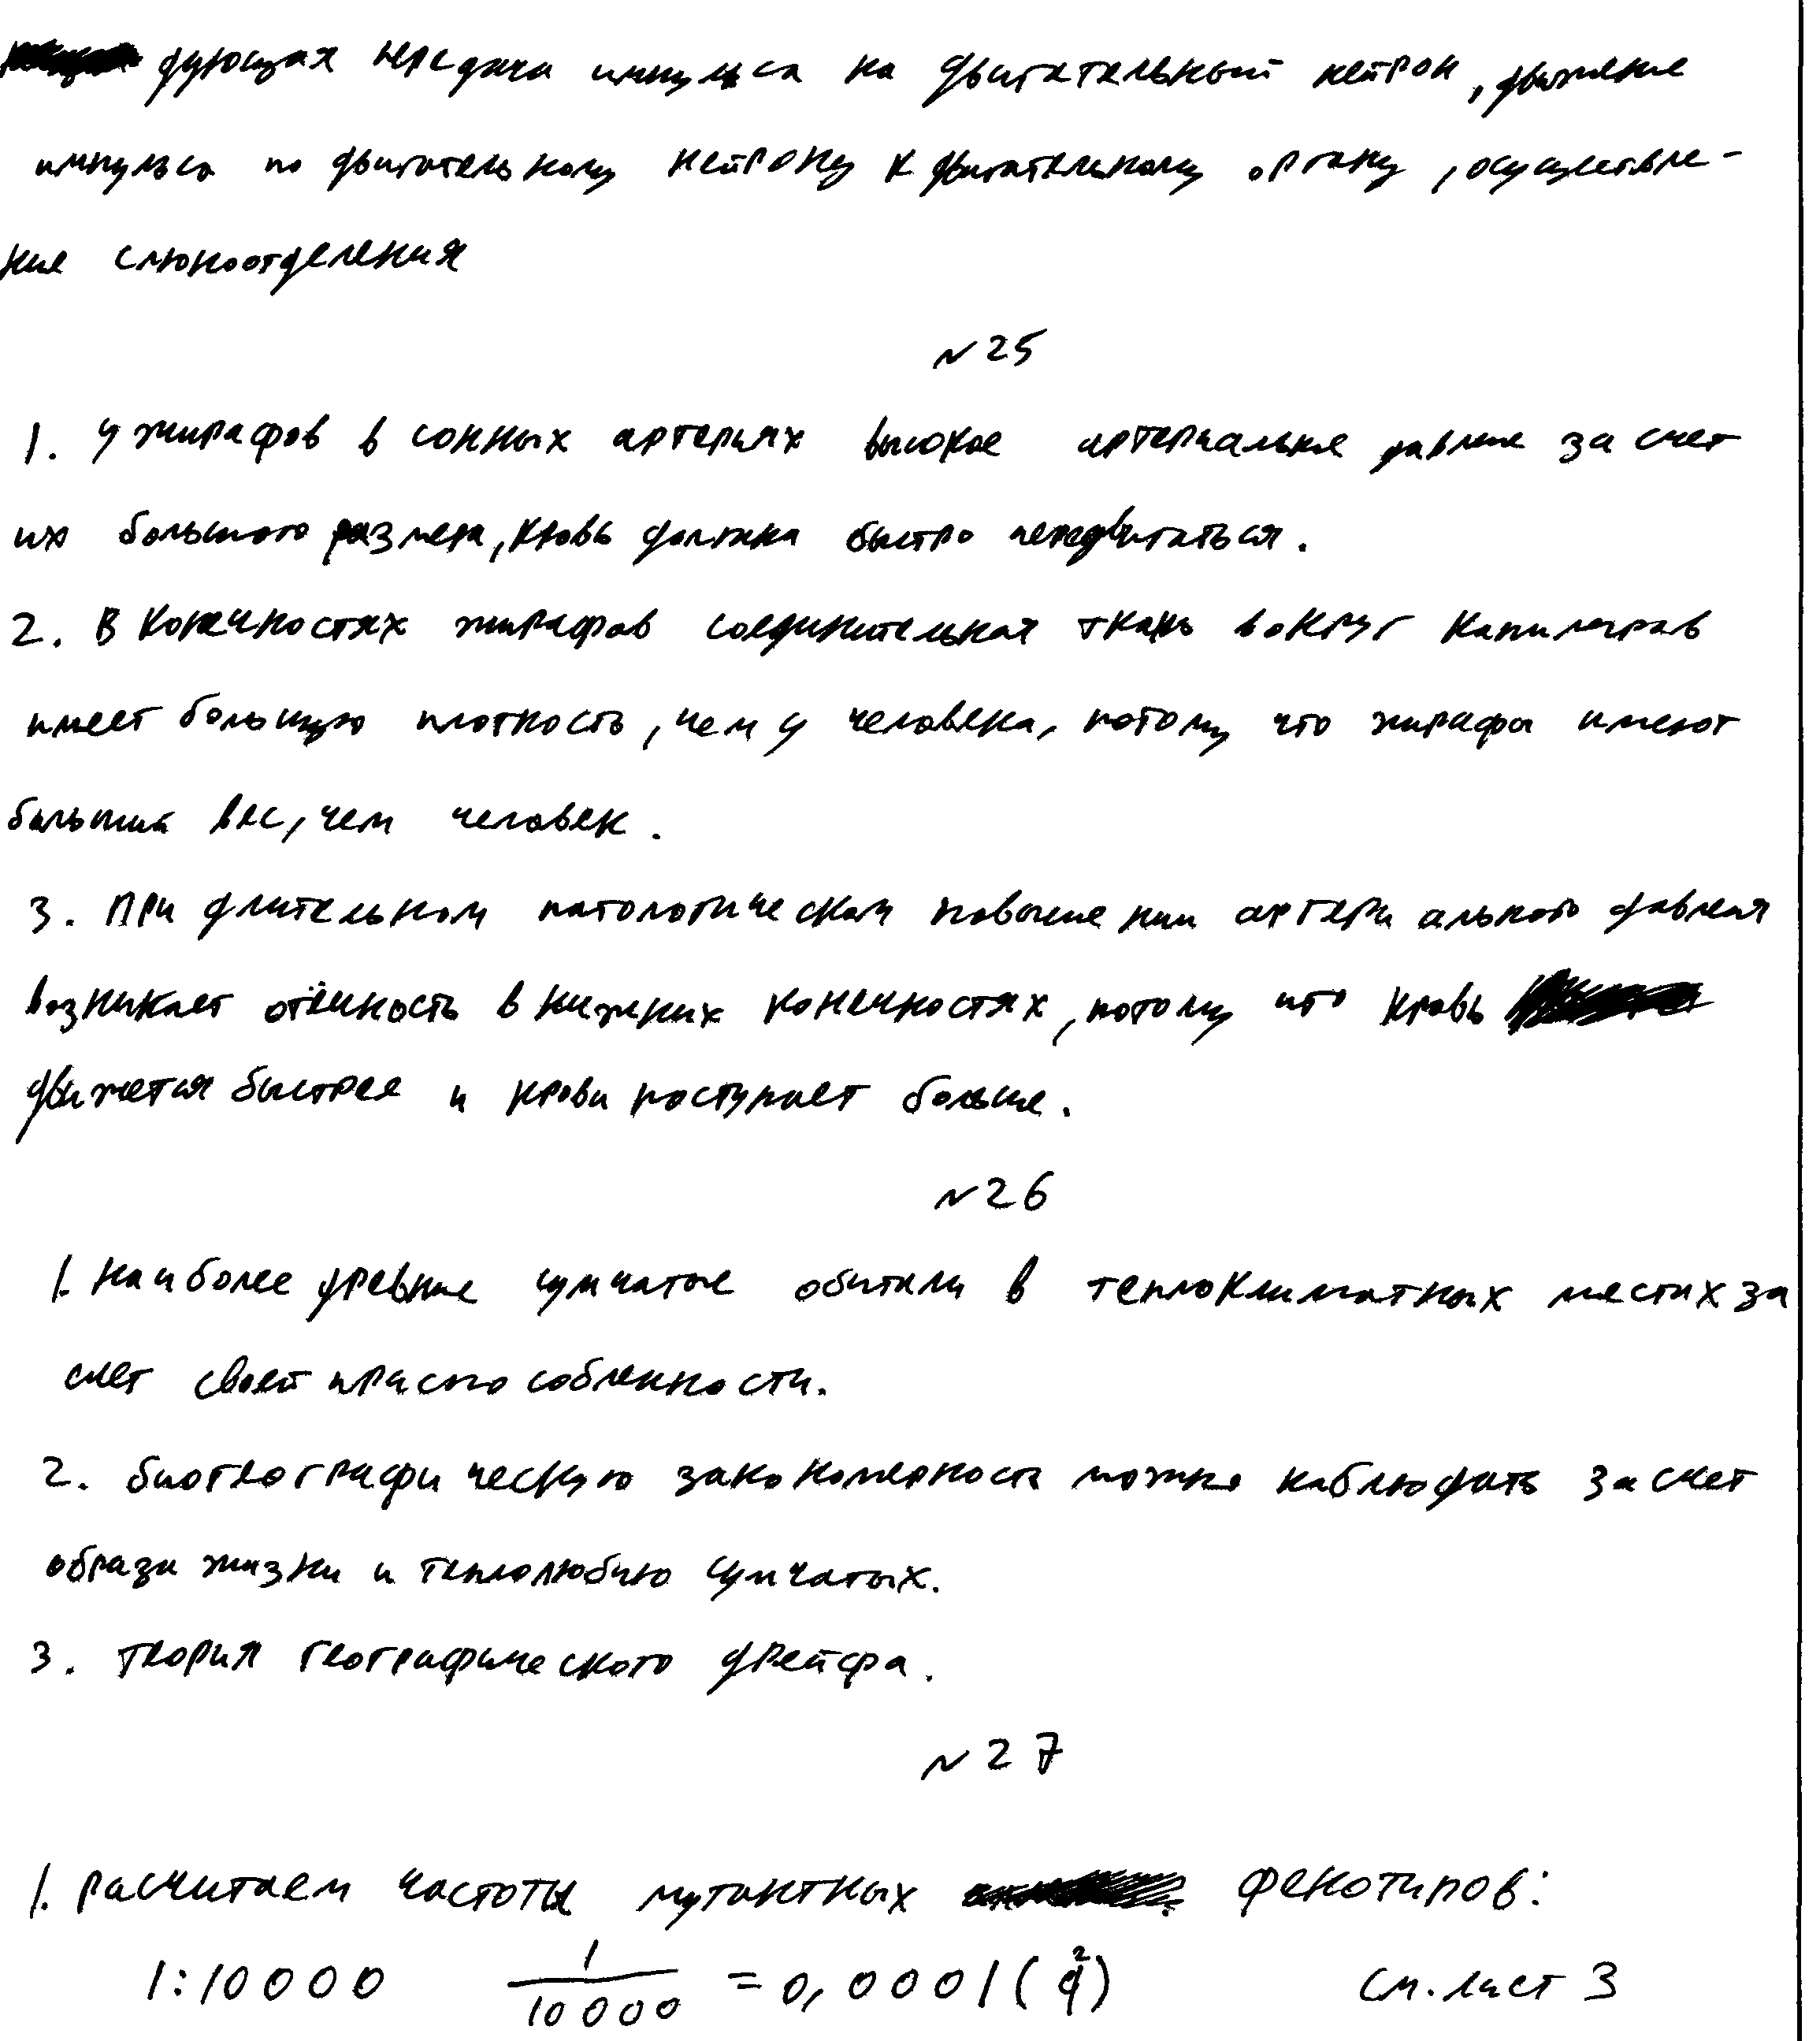 дующая передача импульса на двигательный нейрон, движение
импульса по двигательному нейрону к двигательному органу, осуществле-
ние слюноотделения
№25
1. У жирафов в сонных артериях высокое артериальное давление за счет
их большого размера, кровь должна быстро передвигаться.
2. В конечностях жирафов соединительная ткань вокруг капиляров
имеет большую плотность, чем у человека, потому что жирафы имеют
больший вес, чем человек.
3. При длительном патологическом повышении артериального давления
возникает отёчность в нижних конечностях, потому что кровь
движется быстрее и крови поступает больше.
№26
1. Наиболее древние сумчатые обитали в теплоклиматных местах за
счет своей приспособленности.
2. Биогеографическую закономерность можно наблюдать за счет
образа жизни и теплолюбию сумчатых.
3. Теория географического дрейфа.
№27
1. Расчитаем частоты мутантных фенотипов:
1:10000 1/10000 = 0,0001 (q²) см. лист 3